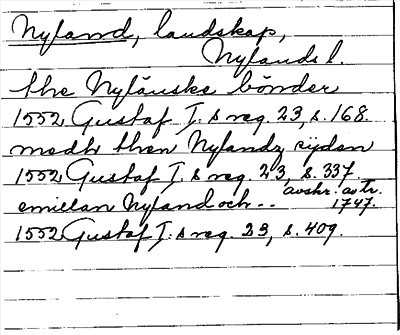 Nyland, landskap,
Nylands l.
the Nylänske bönder
1552 Gustaf I:s reg. 23, s. 168.
medh then Nylandz sijdon
1552 Gustaf I:s reg. 23, s. 337.
avskr. av tr.
emillan Nyland och -- 1747.
1552 Gustaf I:s reg. 23, s. 409.